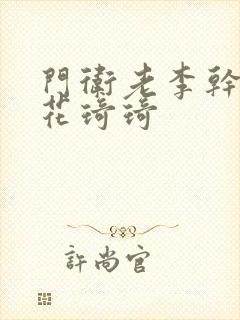 門衛老李幹
花琦琦
許尚官